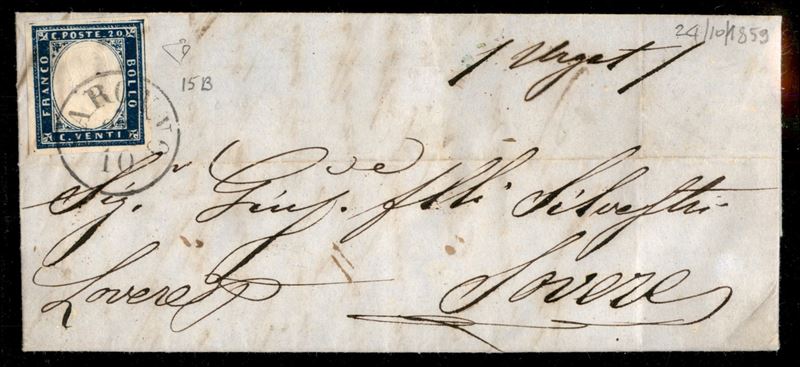 C. POSTE. 20.
FRANCO
BOLLO
C. VENTI
10
15B
24/10/1859
/ Urget /
Sig.r Giuse.e flli Silvestri
Lovere Sovere